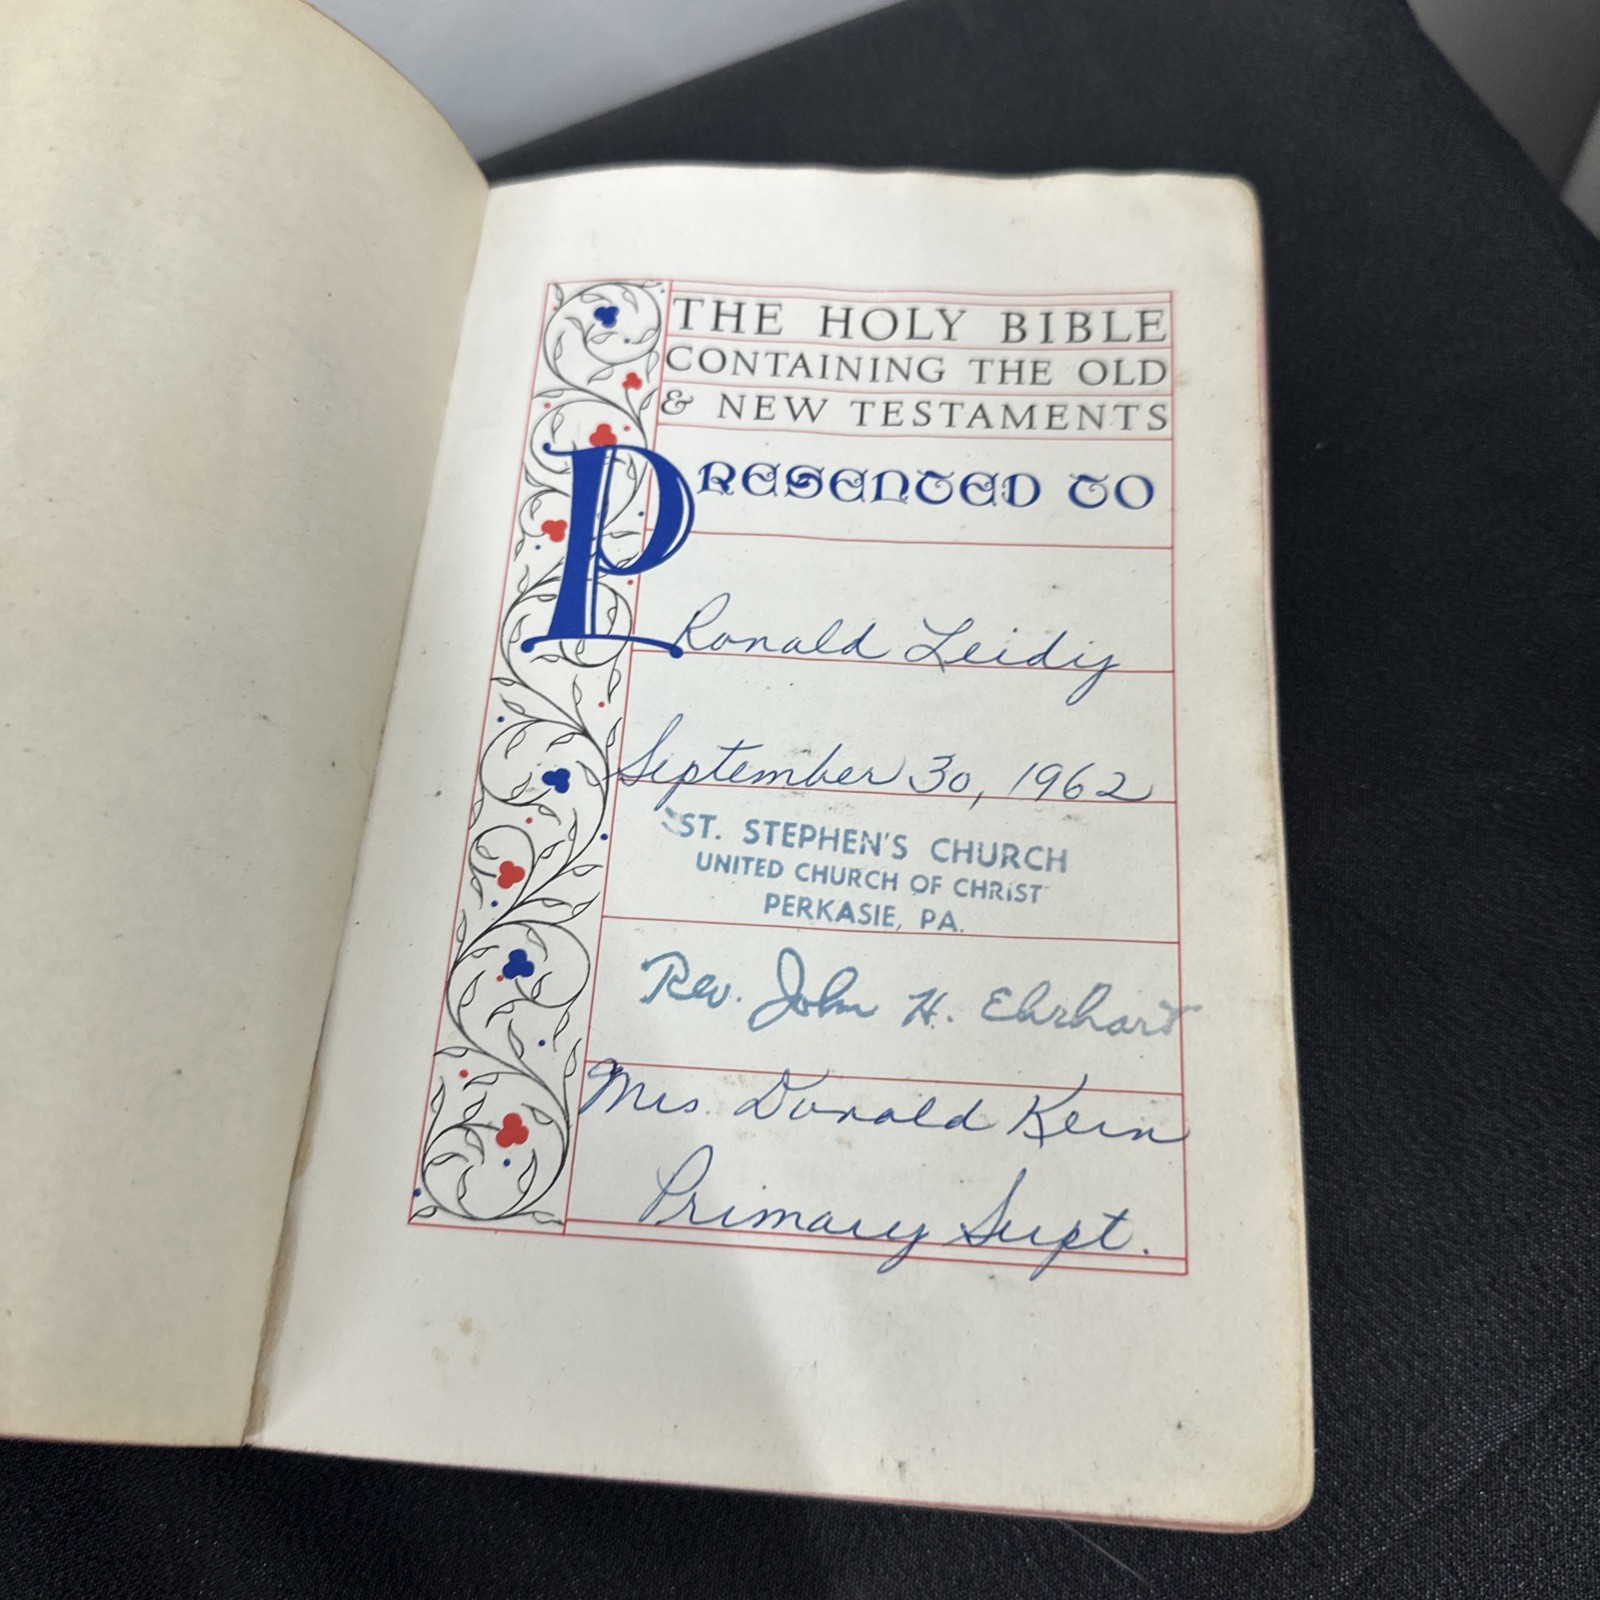 THE HOLY BIBLE
CONTAINING THE OLD
& NEW TESTAMENTS
PRESENTED TO
Ronald Leidy
September 30, 1962
ST. STEPHEN'S CHURCH
UNITED CHURCH OF CHRIST
PERKASIE, PA.
Rev. John H. Ehrhart
Mrs. Donald Kern
Primary Supt.